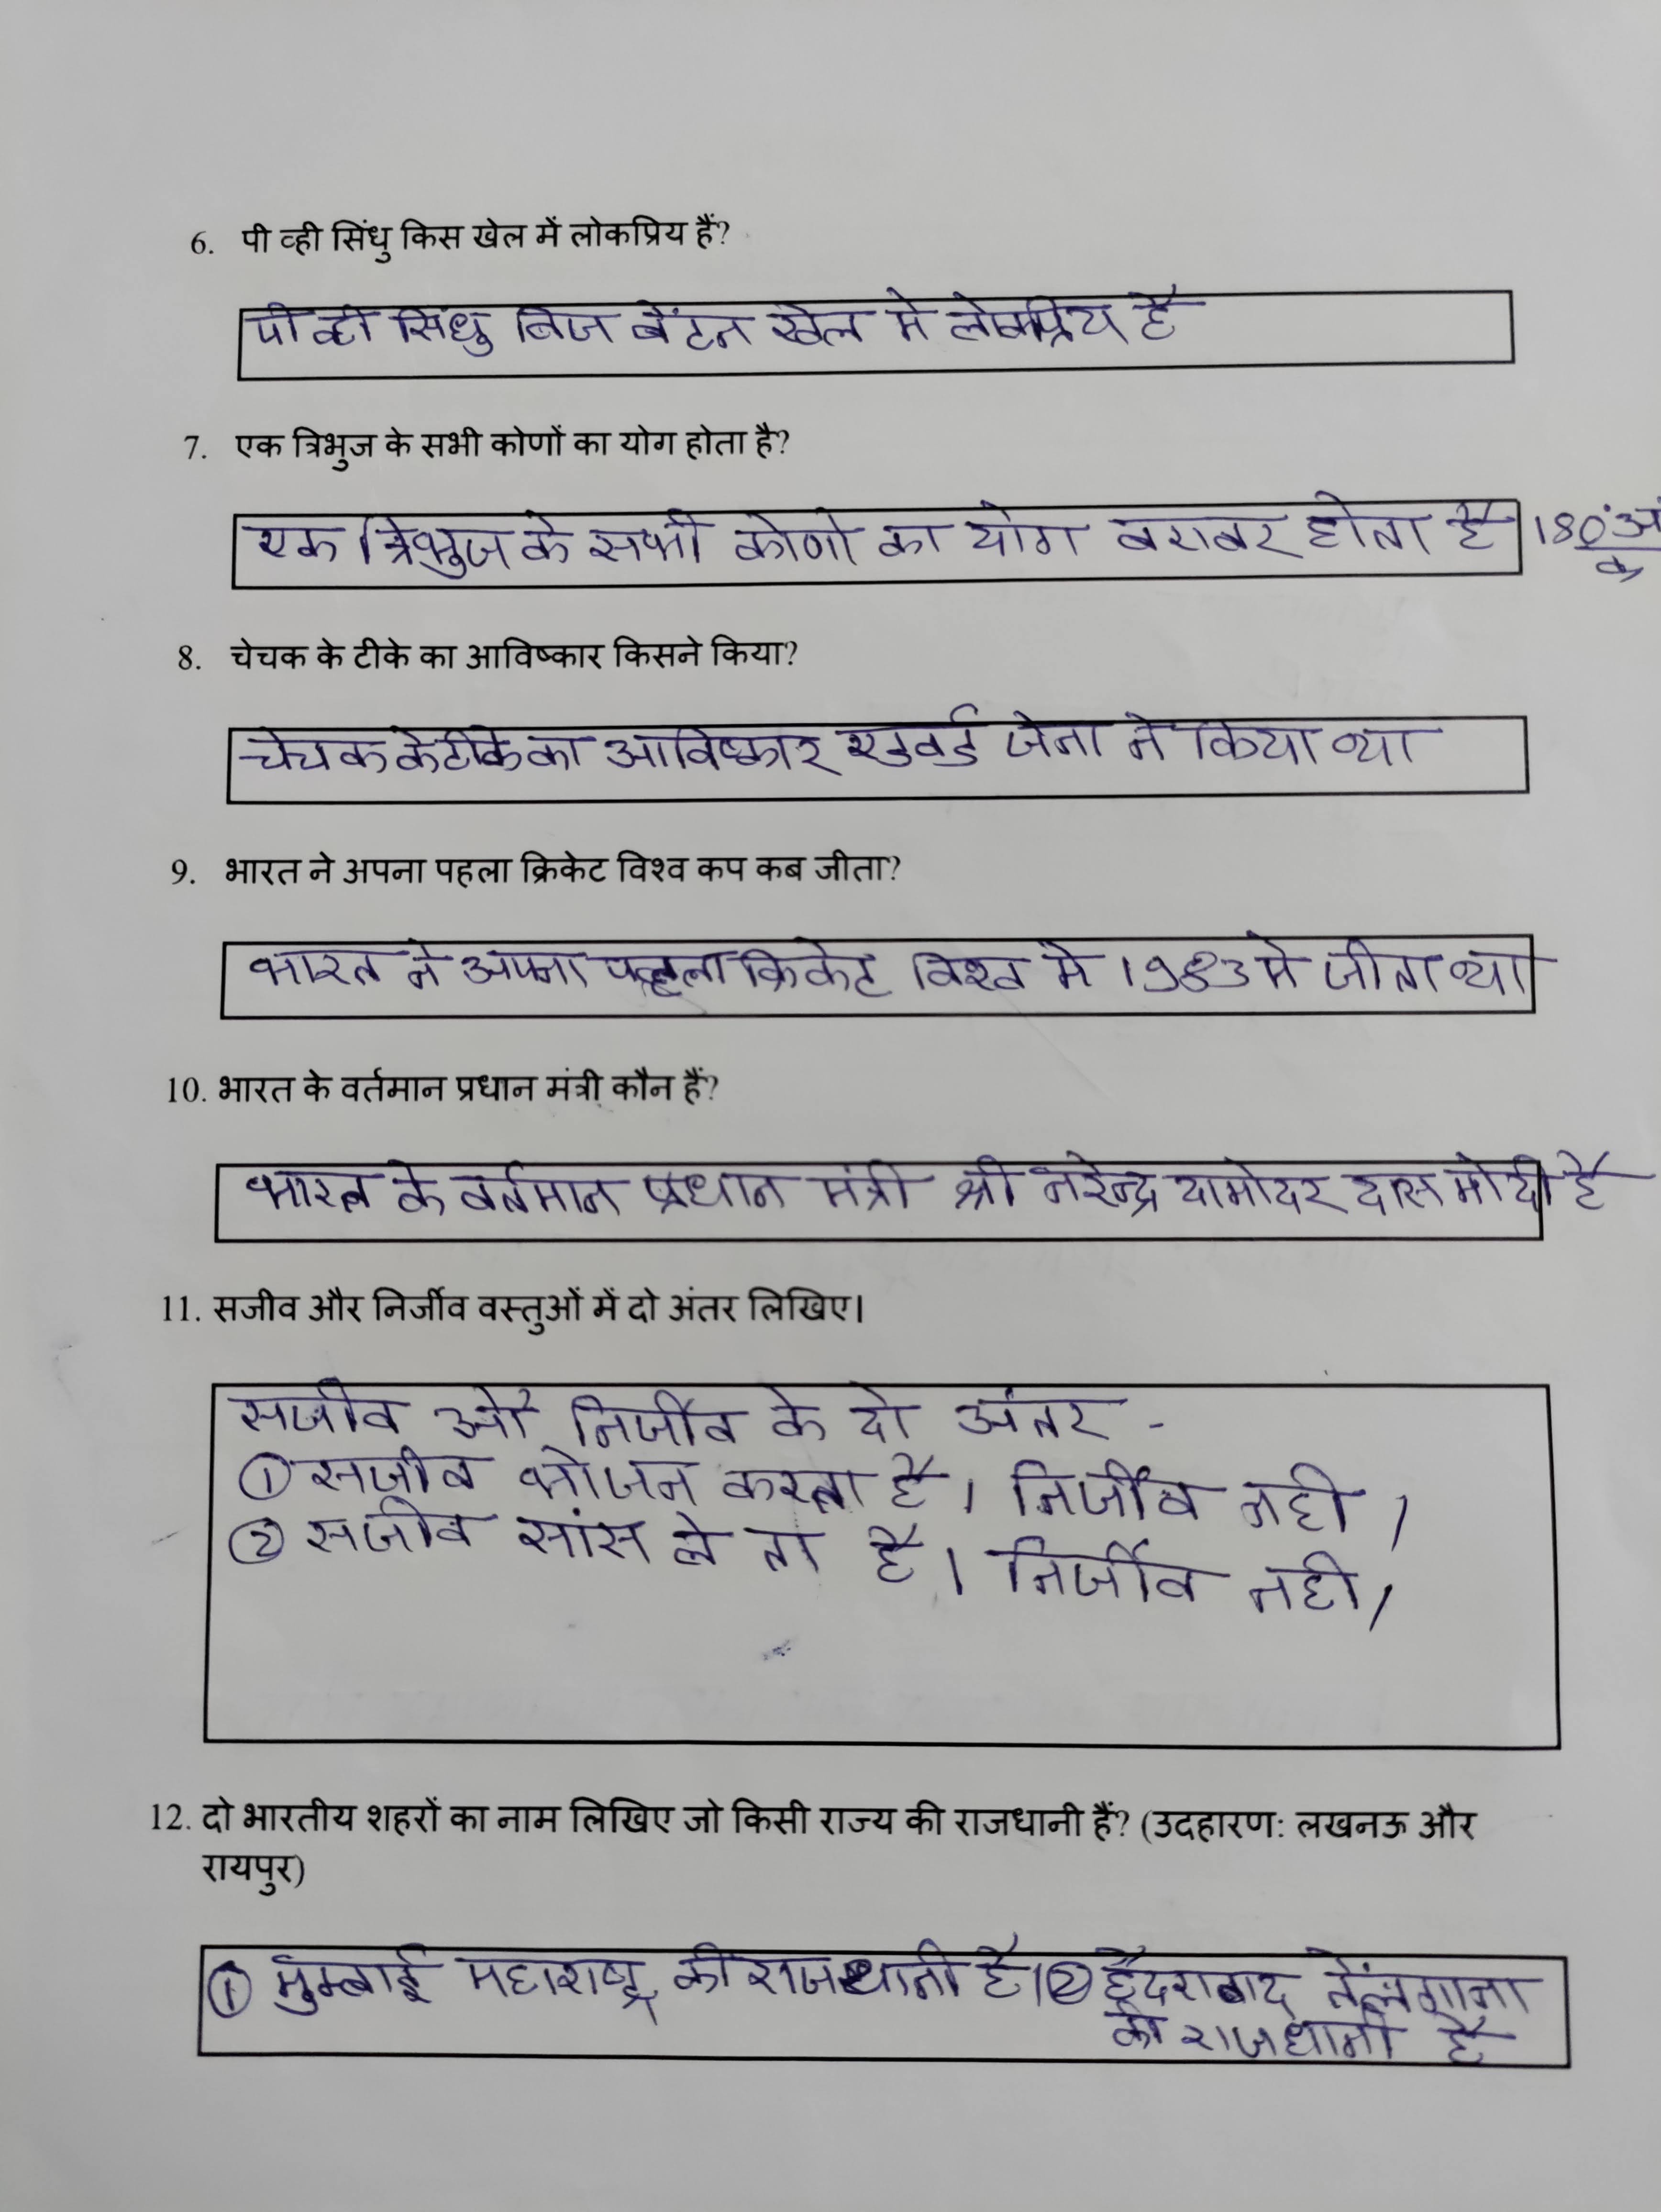 6. पी व्ही सिंधु किस खेल में लोकप्रिय हैं?
पी व्ही सिंधु बिज बेंटन खेल मे लोकप्रिय है
7. एक त्रिभुज के सभी कोणों का योग होता है?
एक त्रिभुज के सभी कोणो का योग बराबर होता है 180°
8. चेचक के टीके का आविष्कार किसने किया?
चेचक के टीके का आविष्कार एडवर्ड जेना ने किया था
9. भारत ने अपना पहला क्रिकेट विश्व कप कब जीता?
भारत ने अपना पहला क्रिकेट विश्व मे 1983 मे जीता था
10. भारत के वर्तमान प्रधान मंत्री कौन हैं?
भारत के वर्तमान प्रधान मंत्री श्री नरेन्द्र दामोदर दास मोदी है
11. सजीव और निर्जीव वस्तुओं में दो अंतर लिखिए।
सजीव औ निर्जीव के दो अंतर -
① सजीव भोजन करता है। निर्जीव नही।
② सजीव सांस ले ता है। निर्जीव नही।
12. दो भारतीय शहरों का नाम लिखिए जो किसी राज्य की राजधानी हैं? (उदहारण: लखनऊ और
रायपुर)
① मुम्बाई महाराष्ट्र की राजधानी है। ② हैदराबाद तेलंगाना
की राजधानी है